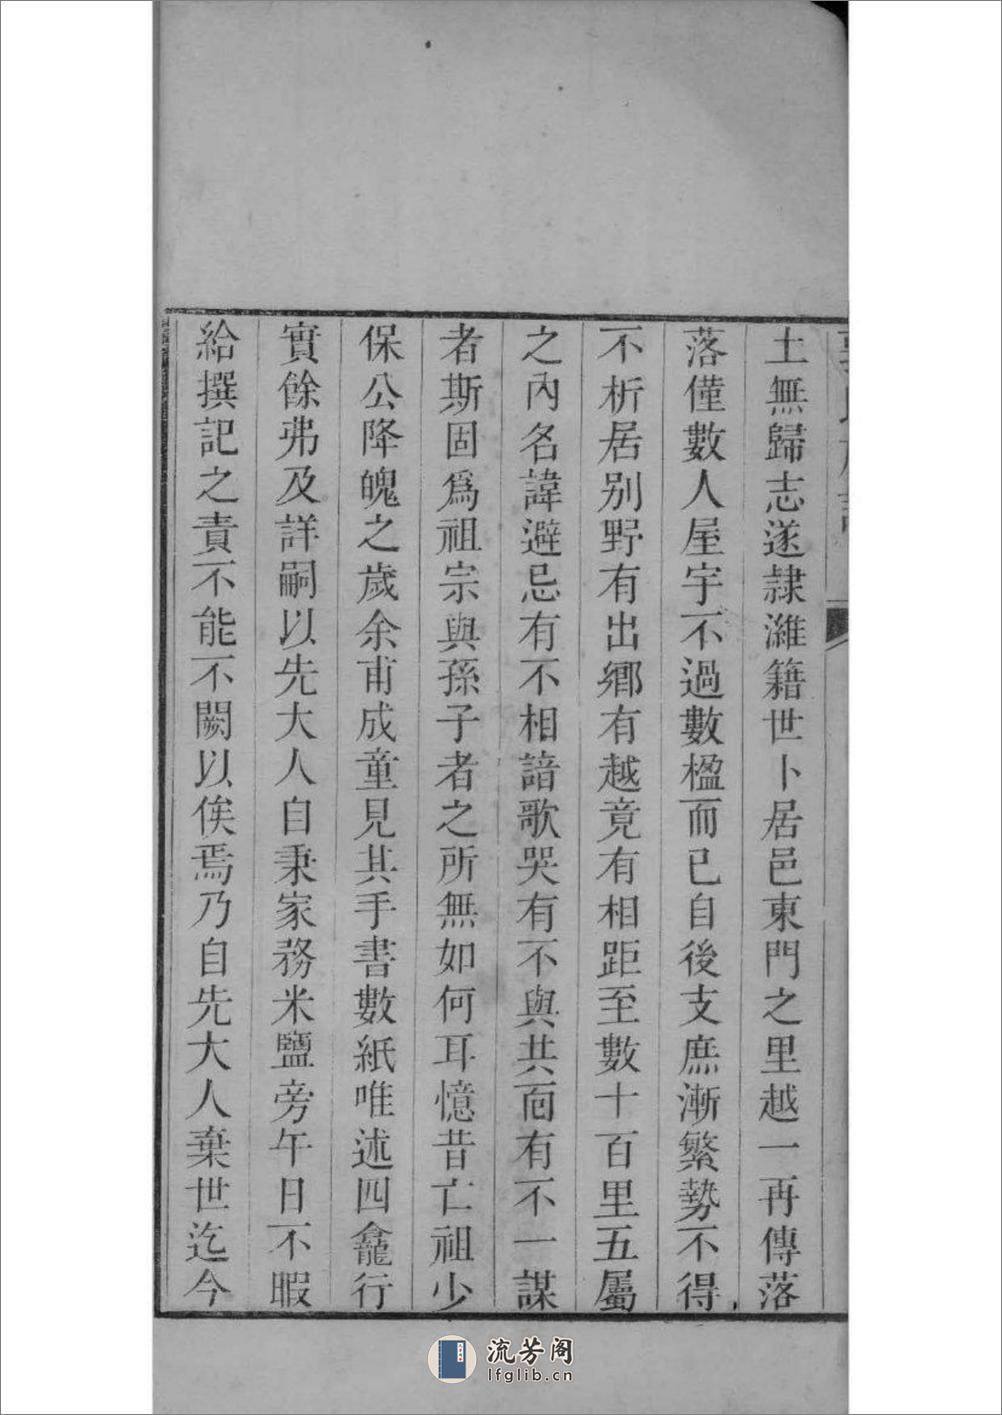 土無歸志遂隷濰籍世卜居邑東門之里越一再傳落
落僅數人屋宇不過數楹而已自後支庶漸繁勢不得
不析居别野有出鄉有越竟有相距至數十百里五屬
之內名諱避忌有不相諳歌哭有不與共而有不一謀
者斯固爲祖宗與孫子者之所無如何耳憶昔亡祖少
保公降魄之歲余甫成童見其手書數紙唯述四龕行
實餘弗及詳嗣以先大人自秉家務米鹽旁午日不暇
給撰記之責不能不闕以俟焉乃自先大人棄世迄今
流芳阁
lfglib.cn